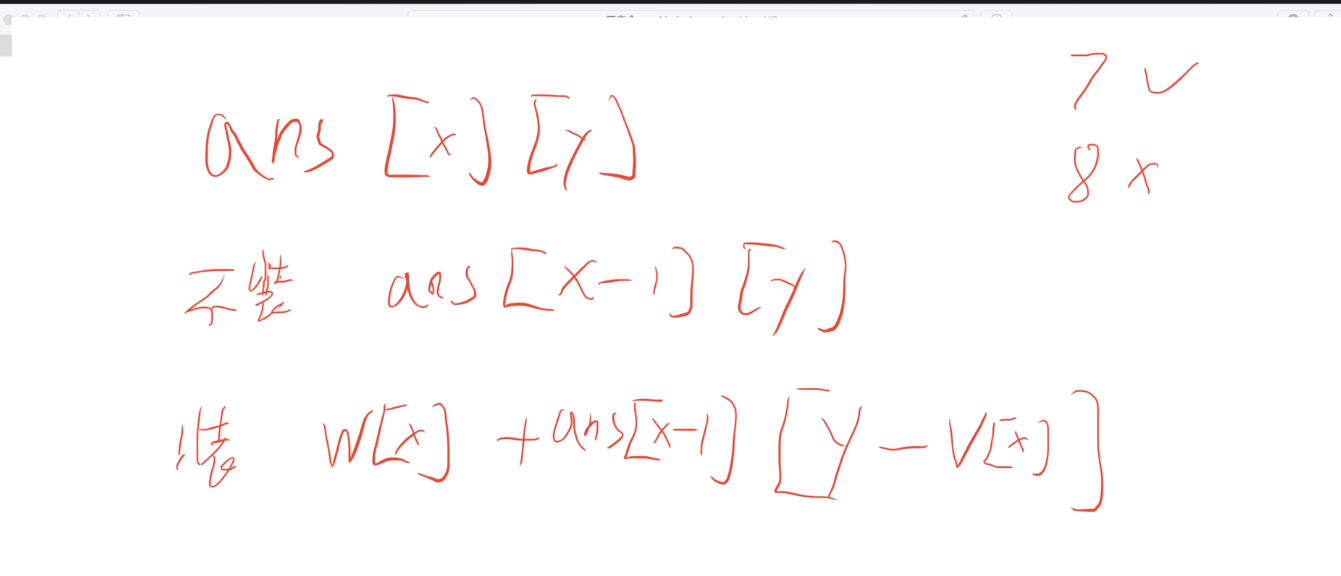 ans [x] [y]
7 ✓
8 ×
不装 ans [x-1] [y]
装 W[x] + ans[x-1] [y - V[x]]